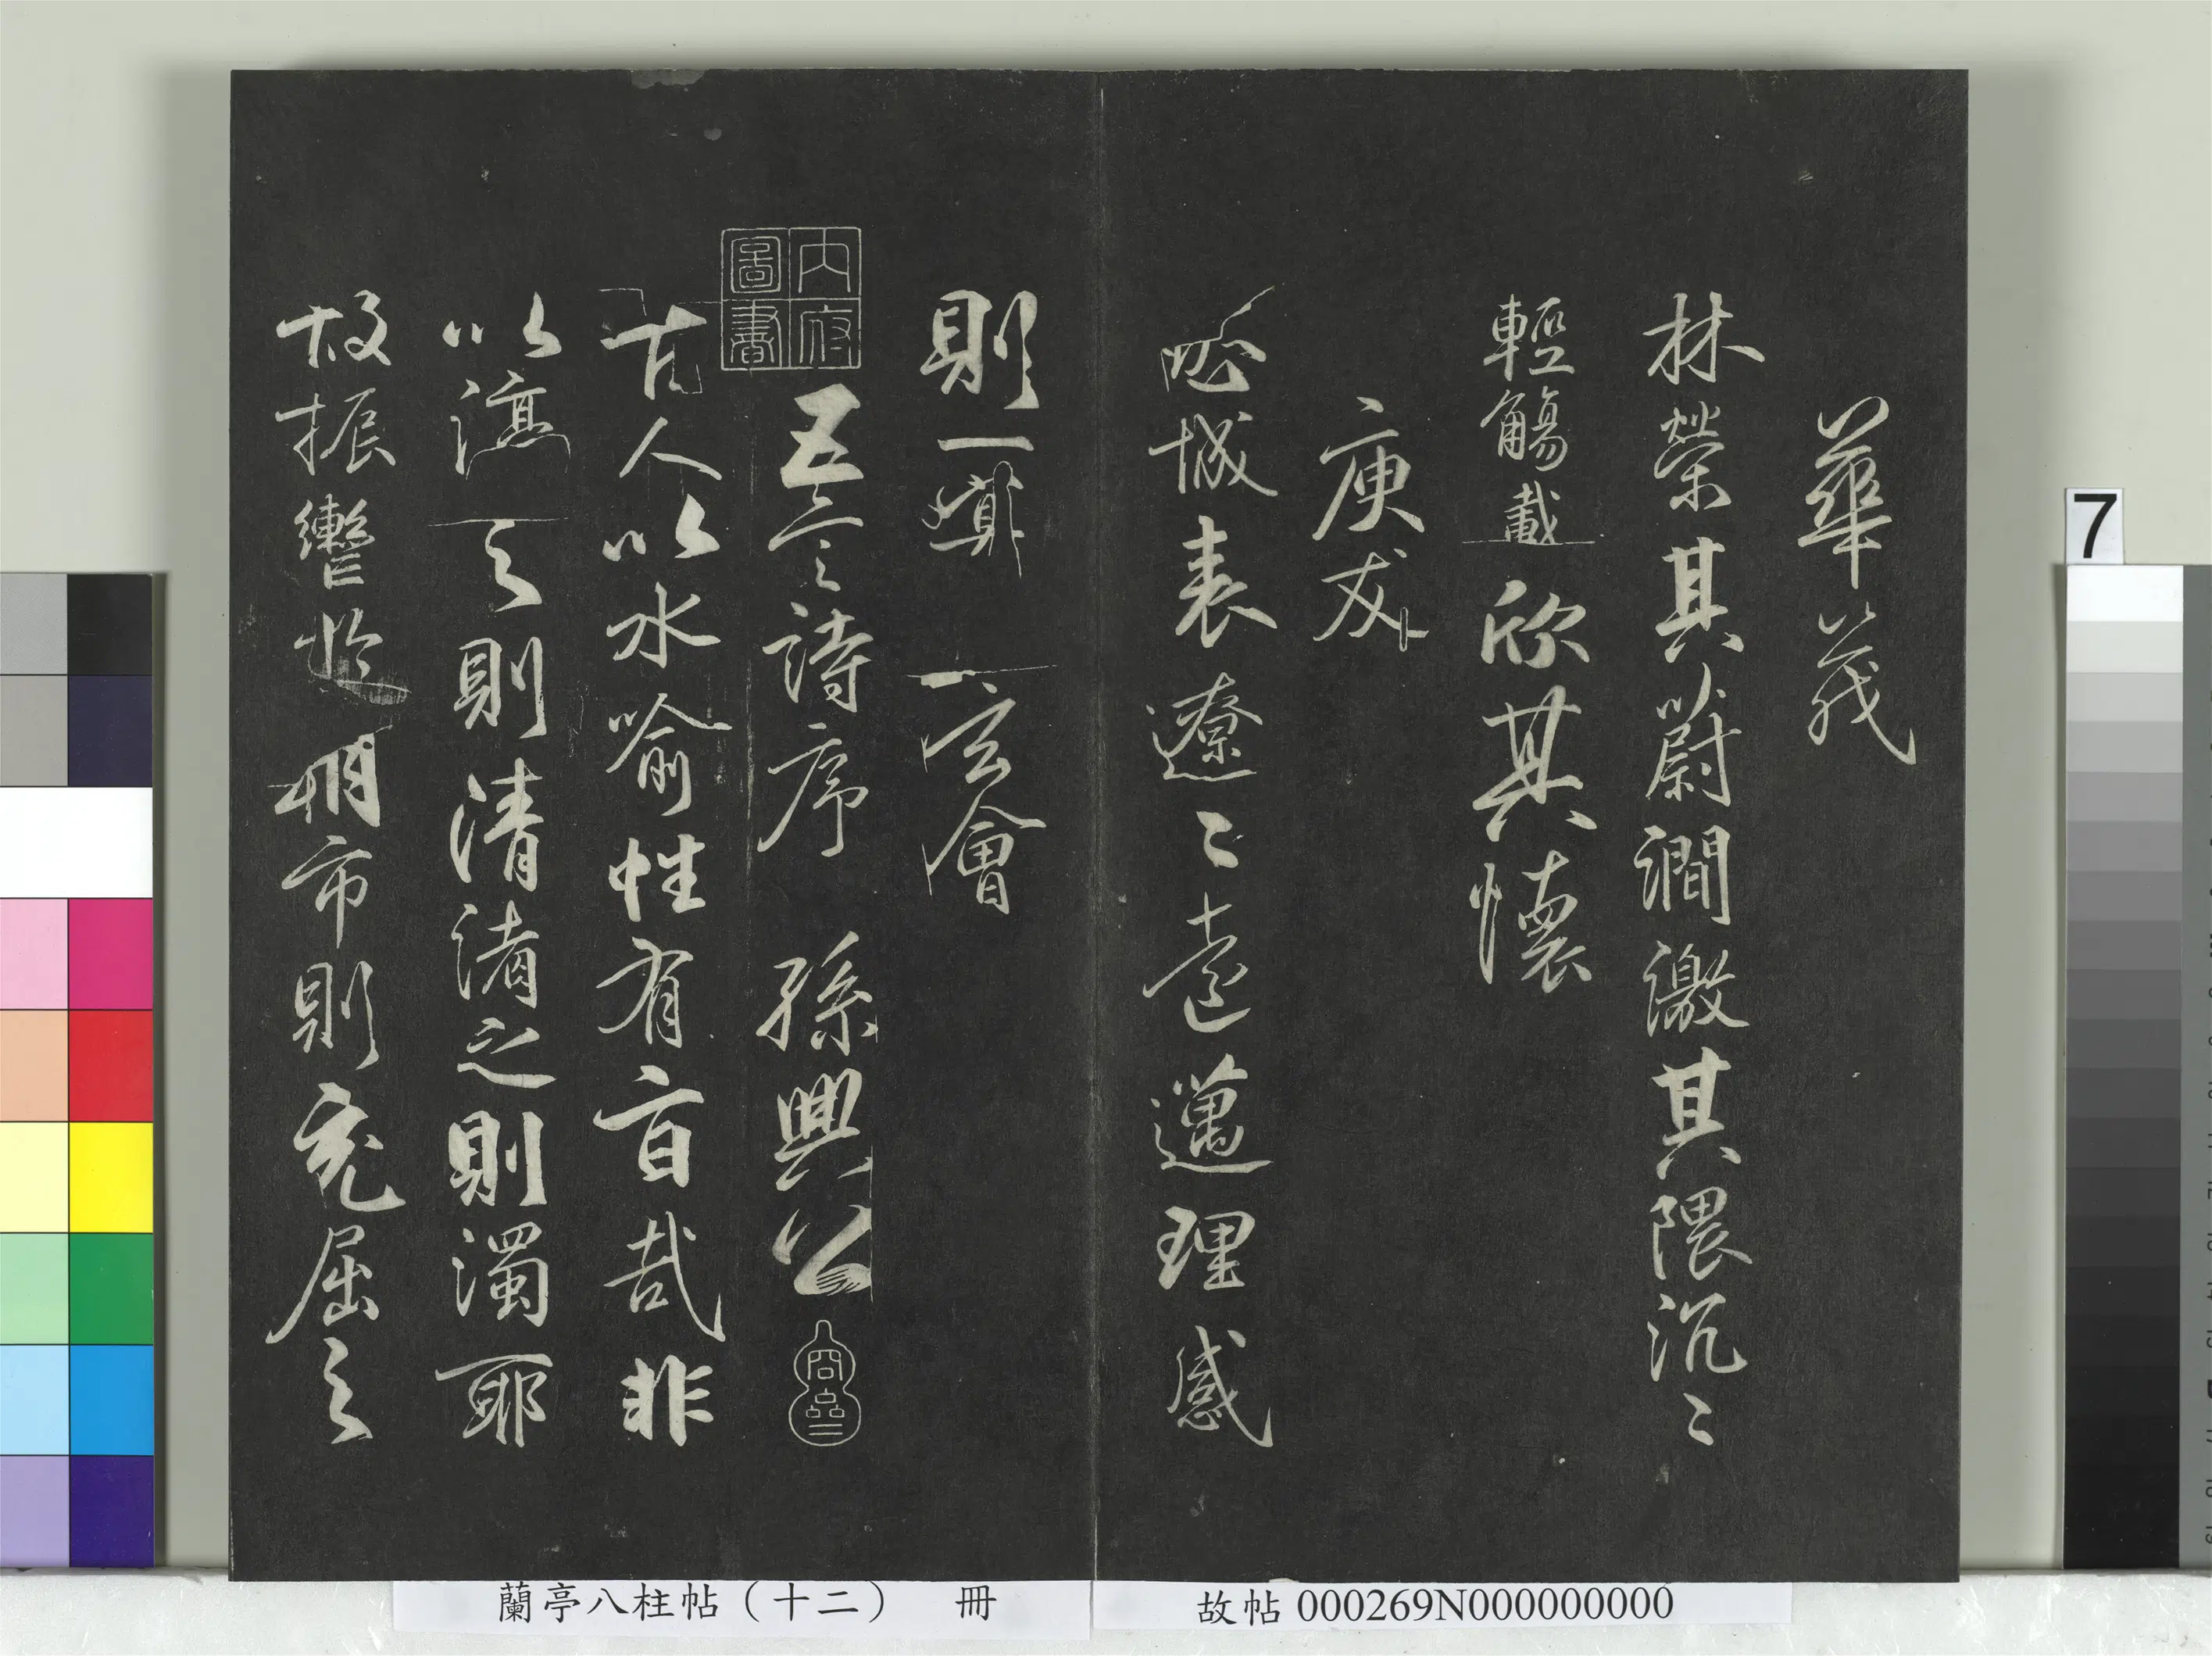 華茂
林榮其蔚澗激其隈沉〻
輕觴載欣其懷
庚友
城表遼〻遠邁理感
則一 玄會
五言詩序 孫興公
古人以水喻性有旨哉非
以渟之則清淆之則濁耶
故振轡於朝市則充屈之
內府圖書
蘭亭八柱帖（十二） 冊
故帖 000269N000000000
7